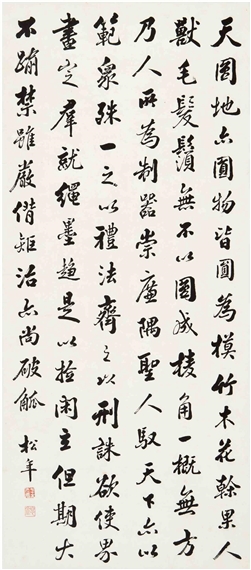 天圓地亦圓物皆圓為模竹木花幹果人
獸毛髮鬚無不以圓成棱角一概無方
乃人所為制器崇廉隅聖人馭天下亦以
範衆殊一之以禮法齊之以刑誅欲使界
畫定羣就繩墨趨是以檢閑主但期大
不踰禁雖嚴偕矩治亦尚破觚
松年